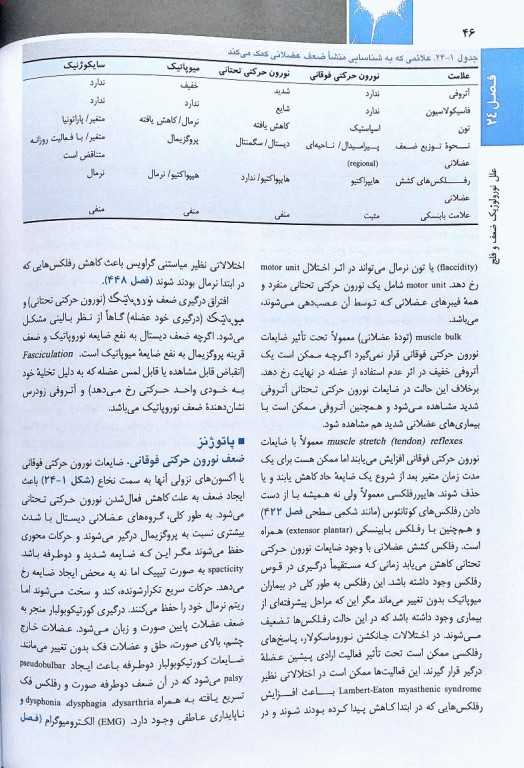 ۴۶
فصل ۲۴
علل نورولوژیک ضعف و فلج
جدول ۱-۲۴. علائمی که به شناسایی منشأ ضعف عضلانی کمک می‌کند
علامت نورون حرکتی فوقانی نورون حرکتی تحتانی میوپاتیک سایکوژنیک
آتروفی ندارد شدید خفیف ندارد
فاسیکولاسیون ندارد شایع ندارد ندارد
تون اسپاستیک کاهش یافته نرمال/ کاهش یافته متغیر/ پاراتونیا
نحوهٔ توزیع ضعف پیرامیدال/ ناحیه‌ای دیستال/ سگمنتال پروگزیمال متغیر/ با فعالیت روزانه
عضلانی (regional) متناقض است
رفلکس‌های کشش هایپراکتیو هایپواکتیو/ ندارد هیپواکتیو/ نرمال نرمال
عضلانی
علامت بابنسکی مثبت منفی منفی منفی
(flaccidity) یا تون نرمال می‌تواند در اثر اختلال motor unit
رخ دهد. motor unit شامل یک نورون حرکتی تحتانی منفرد و
همهٔ فیبرهای عضلانی که توسط آن عصب‌دهی می‌شوند،
می‌باشد.
muscle bulk (تودهٔ عضلانی) معمولاً تحت تأثیر ضایعات
نورون حرکتی فوقانی قرار نمی‌گیرد اگرچه ممکن است یک
آتروفی خفیف در اثر عدم استفاده از عضله در نهایت رخ دهد.
برخلاف این حالت در ضایعات نورون حرکتی تحتانی آتروفی
شدید مشاهده می‌شود و همچنین آتروفی ممکن است با
بیماری‌های عضلانی شدید هم مشاهده شود.
muscle stretch (tendon) reflexes معمولاً با ضایعات
نورون حرکتی فوقانی افزایش می‌یابند اما ممکن هست برای یک
مدت زمان متغیر بعد از شروع یک ضایعهٔ حاد کاهش یابند و یا
حذف شوند. هایپررفلکسی معمولاً ولی نه همیشه با از دست
دادن رفلکس‌های کوتانئوس (مانند شکمی سطحی فصل ۴۲۲)
و همچنین با رفلکس بابینسکی (extensor plantar) همراه
است. رفلکس کشش عضلانی با وجود ضایعات نورون حرکتی
تحتانی کاهش می‌یابد زمانی که مستقیماً درگیری در قوس
رفلکس وجود داشته باشد. این رفلکس به طور کلی در بیماران
میوپاتیک بدون تغییر می‌ماند مگر این که مراحل پیشرفته‌ای از
بیماری وجود داشته باشد که در این حالت رفلکس‌ها تضعیف
می‌شوند. در اختلالات جانکشن نوروماسکولار، پاسخ‌های
رفلکسی ممکن است تحت تأثیر فعالیت ارادی پیشین عضلهٔ
درگیر قرار گیرند. این فعالیت‌ها ممکن است در اختلالاتی نظیر
Lambert-Eaton myasthenic syndrome باعث افزایش
رفلکس‌هایی که در ابتدا کاهش پیدا کرده بودند شوند و در
اختلالاتی نظیر میاستنی گراویس باعث کاهش رفلکس‌هایی که
در ابتدا نرمال بودند شوند (فصل ۴۴۸).
افتراق درگیری ضعف نوروپاتیک (نورون حرکتی تحتانی) و
میوپاتیک (درگیری خود عضله) گاهاً از نظر بالینی مشکل
می‌شود. اگرچه ضعف دیستال به نفع ضایعه نوروپاتیک و ضعف
قرینه پروگزیمال به نفع ضایعهٔ میوپاتیک است. Fasciculation
(انقباض قابل مشاهده یا قابل لمس عضله که به دلیل تخلیهٔ خود
به خودی واحد حرکتی رخ می‌دهد) و آتروفی زودرس
نشان‌دهندهٔ ضعف نوروپاتیک می‌باشد.
■ پاتوژنز
ضعف نورون حرکتی فوقانی. ضایعات نورون حرکتی فوقانی
یا آکسون‌های نزولی آنها به سمت نخاع (شکل ۱-۲۴) باعث
ایجاد ضعف به علت کاهش فعال‌شدن نورون حرکتی تحتانی
می‌شود. به طور کلی، گروه‌های عضلانی دیستال با شدت
بیشتری نسبت به پروگزیمال درگیر می‌شوند و حرکات محوری
حفظ می‌شوند مگر این که ضایعه شدید و دوطرفه باشد
spacticity به صورت تیپیک اما نه به محض ایجاد ضایعه رخ
می‌دهد. حرکات سریع تکرارشونده، کند و سخت می‌شوند اما
ریتم نرمال خود را حفظ می‌کنند. درگیری کورتیکوبولبار منجر به
ضعف عضلات پایین صورت و زبان می‌شود. عضلات خارج
چشم، بالای صورت، حلق و عضلات فک بدون تغییر می‌مانند.
ضایعات کورتیکوبولبار دوطرفه باعث ایجاد pseudobulbar
palsy می‌شود که در آن ضعف دوطرفه صورت و رفلکس فک
تسریع یافته به همراه dysarthria، dysphagia، dysphonia و
ناپایداری عاطفی وجود دارد. (EMG) الکترومیوگرام (فصل